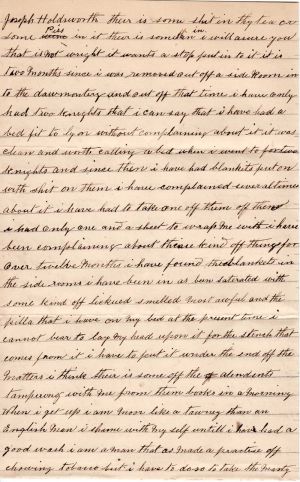 Joseph Holdsworth their is some shit in thy tea or
Piss in
some in it their is somethin i will asure you
that is not wright it wants a stop put in to it it is
two Months since i was removed out off a side Room in
to the dawmontary and out off that time i have only
had two knights that i can say that i have had a
bed fit to ly on without complaining about it it was
clean and worth calling a bed when i went to for two
knights and since then i have had blankets put on
with shit on them i have complained several times
about it i have had to take one off them off then
i had only one and a sheet to wrap me with i have
been complaining about these kind off things for
over twelve Months i have found the blankets in
the side rooms i have been in as ben saterated with
some kind off lickued smelled most awful and the
pilla that i have on my bed at the present time i
cannot bear to lay my head upon it for the stench that
comes from it i have to put it under the end off the
Matters i think their is some off the atendents
tampering with me from them books in a morning
When i get up i am More like a tawney than an
English Man i shame with my self untill i have had a
good wash i am a man that as made a practise off
chowing tobacco but i have to do so to take the nasty